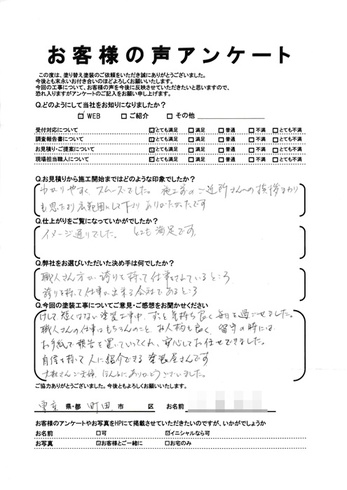 お客様の声アンケート
この度は、塗り替え塗装のご依頼をいただき誠にありがとうございました。
今後とも末永いお付き合いのほどよろしくお願いいたします。
今回の工事について、お客様の声を今後に反映させていただきたいと思いますので、
恐れ入りますがアンケートのご記入をお願い申し上げます。
Q.どのようにして当社をお知りになりましたか？
☑ WEB □ ご紹介 □ その他
受付対応について ☑とても満足 □ 満足 □ 普通 □ 不満 □ とても不満
調査報告書について ☑とても満足 □ 満足 □ 普通 □ 不満 □ とても不満
お見積り・ご提案について ☑とても満足 □ 満足 □ 普通 □ 不満 □ とても不満
現場担当職人について ☑とても満足 □ 満足 □ 普通 □ 不満 □ とても不満
Q.お見積りから施工開始まではどのような印象でしたか？
わかりやすく スムーズでした。施工前のご近所さんへの挨拶まわり
も思ったより広範囲にして下さり ありがたかったです
Q.仕上がりをご覧になっていかがでしたか？
イメージ通りでした。とても満足です。
Q.弊社をお選びいただいた決め手は何でしたか？
職人さん方が誇りを持って仕事をされているところ
誇りを持って仕事が出来る会社であるところ
Q.今回の塗装工事についてご意見・ご感想をお聞かせください
けして短くはない塗装工事中、ずっと気持ち良く毎日を過ごせました。
職人さんの仕事はもちろんのこと、お人柄も良く、留守の時には
お手紙で報告を置いていてくれ、安心してお任せできました。
自信を持って人に紹介できる塗装屋さんです
ほんとにありがとうございました。
ご協力ありがとうございました。今後ともよろしくお願いいたします。
東京 県・都 町田 市 区 お名前
お客様のアンケートやお写真をHPにて掲載させていただきたいのですが、いかがでしょうか
お名前 □ 可 ☑イニシャルなら可
お写真 ☑お客様とご一緒に □ お宅のみ